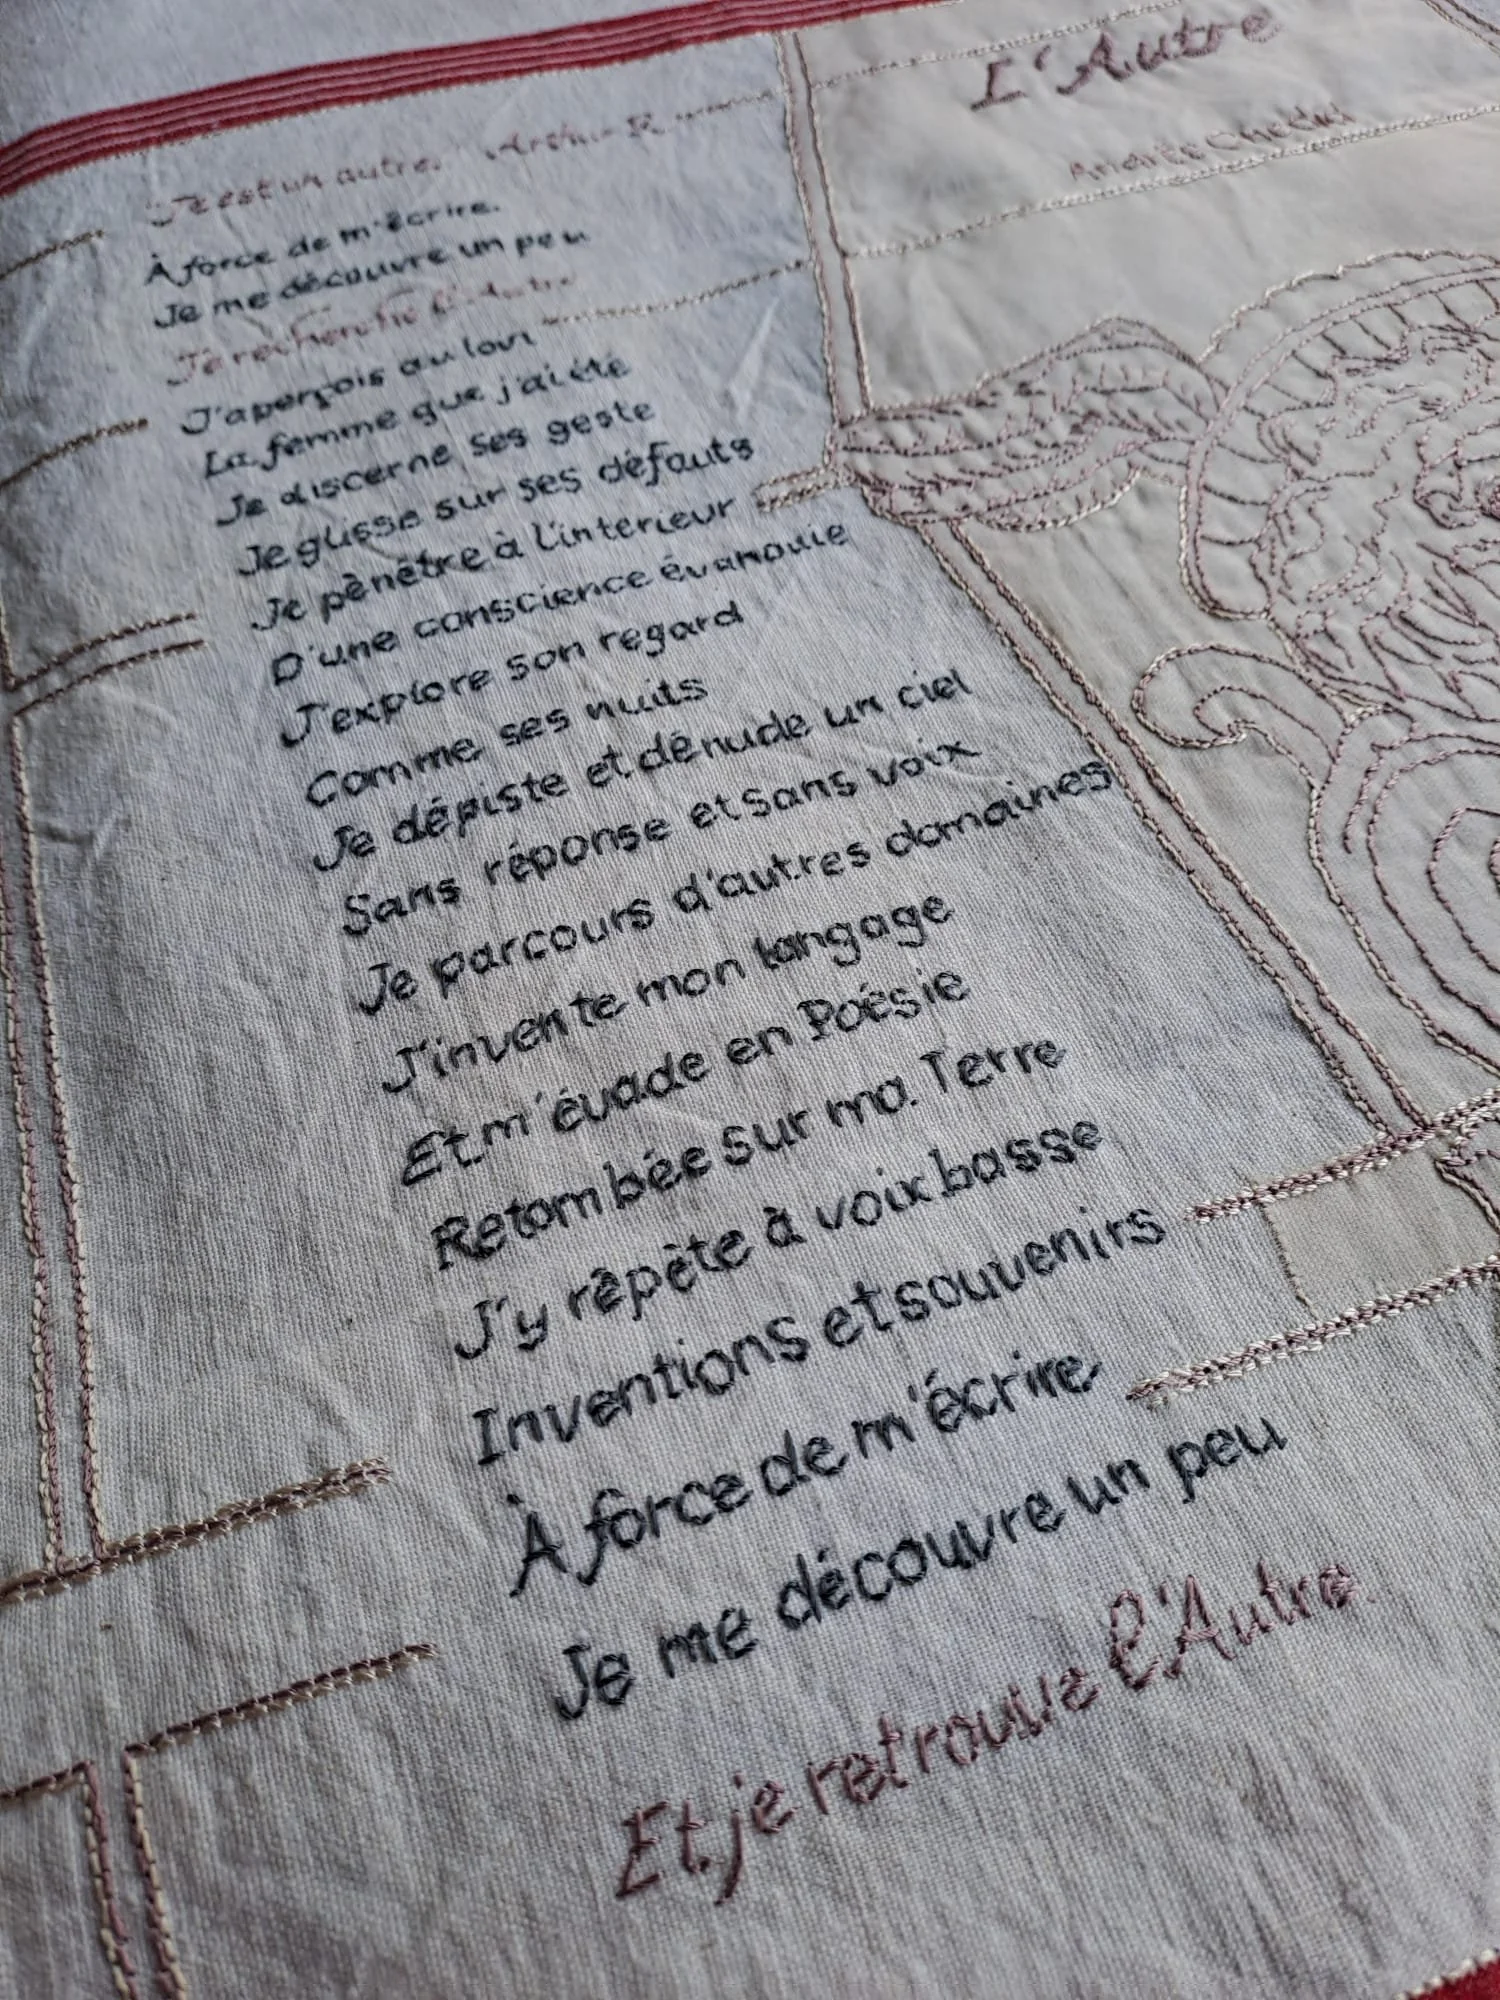 L'Autre
Andrée Chedid
"Je est un autre." Arthur R.
À force de m'écrire.
Je me découvre un peu
Je recherche l'Autre
J'aperçois au loin
La femme que j'ai été
Je discerne ses geste
Je glisse sur ses défauts
Je pénètre à l'intérieur
D'une conscience évanouie
J'explore son regard
Comme ses nuits
Je dépiste et dénude un ciel
Sans réponse et sans voix
Je parcours d'autres domaines
J'invente mon langage
Et m'évade en Poésie
Retombée sur ma Terre
J'y répète à voix basse
Inventions et souvenirs
À force de m'écrire
Je me découvre un peu
Et je retrouve l'Autre.